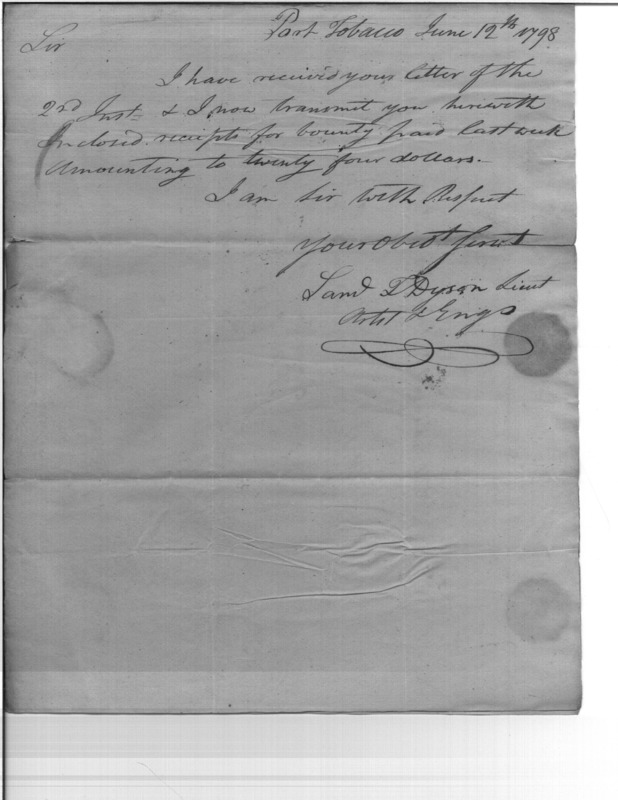 Port Tobacco June 12th 1798
Sir
I have received your letter of the
2nd Inst & I now transmit you herewith
Inclosed receipts for bounty paid last week
Amounting to twenty four dollars.
I am Sir With Respect
Your Obedt Servt
Saml T Dyson Lieut
Artist & Engs